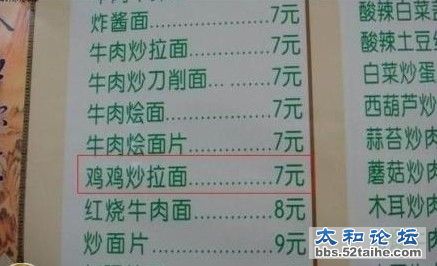 炸酱面............7元
牛肉炒拉面........7元
牛肉炒刀削面......7元
牛肉烩面..........7元
牛肉烩面片........7元
鸡鸡炒拉面........7元
红烧牛肉面........8元
炒面片............9元
酸辣白菜
酸辣土豆丝
白菜炒蛋
西葫芦炒
蒜苔炒肉
蘑菇炒肉
木耳炒肉
太和论坛
bbs.52taihe.com